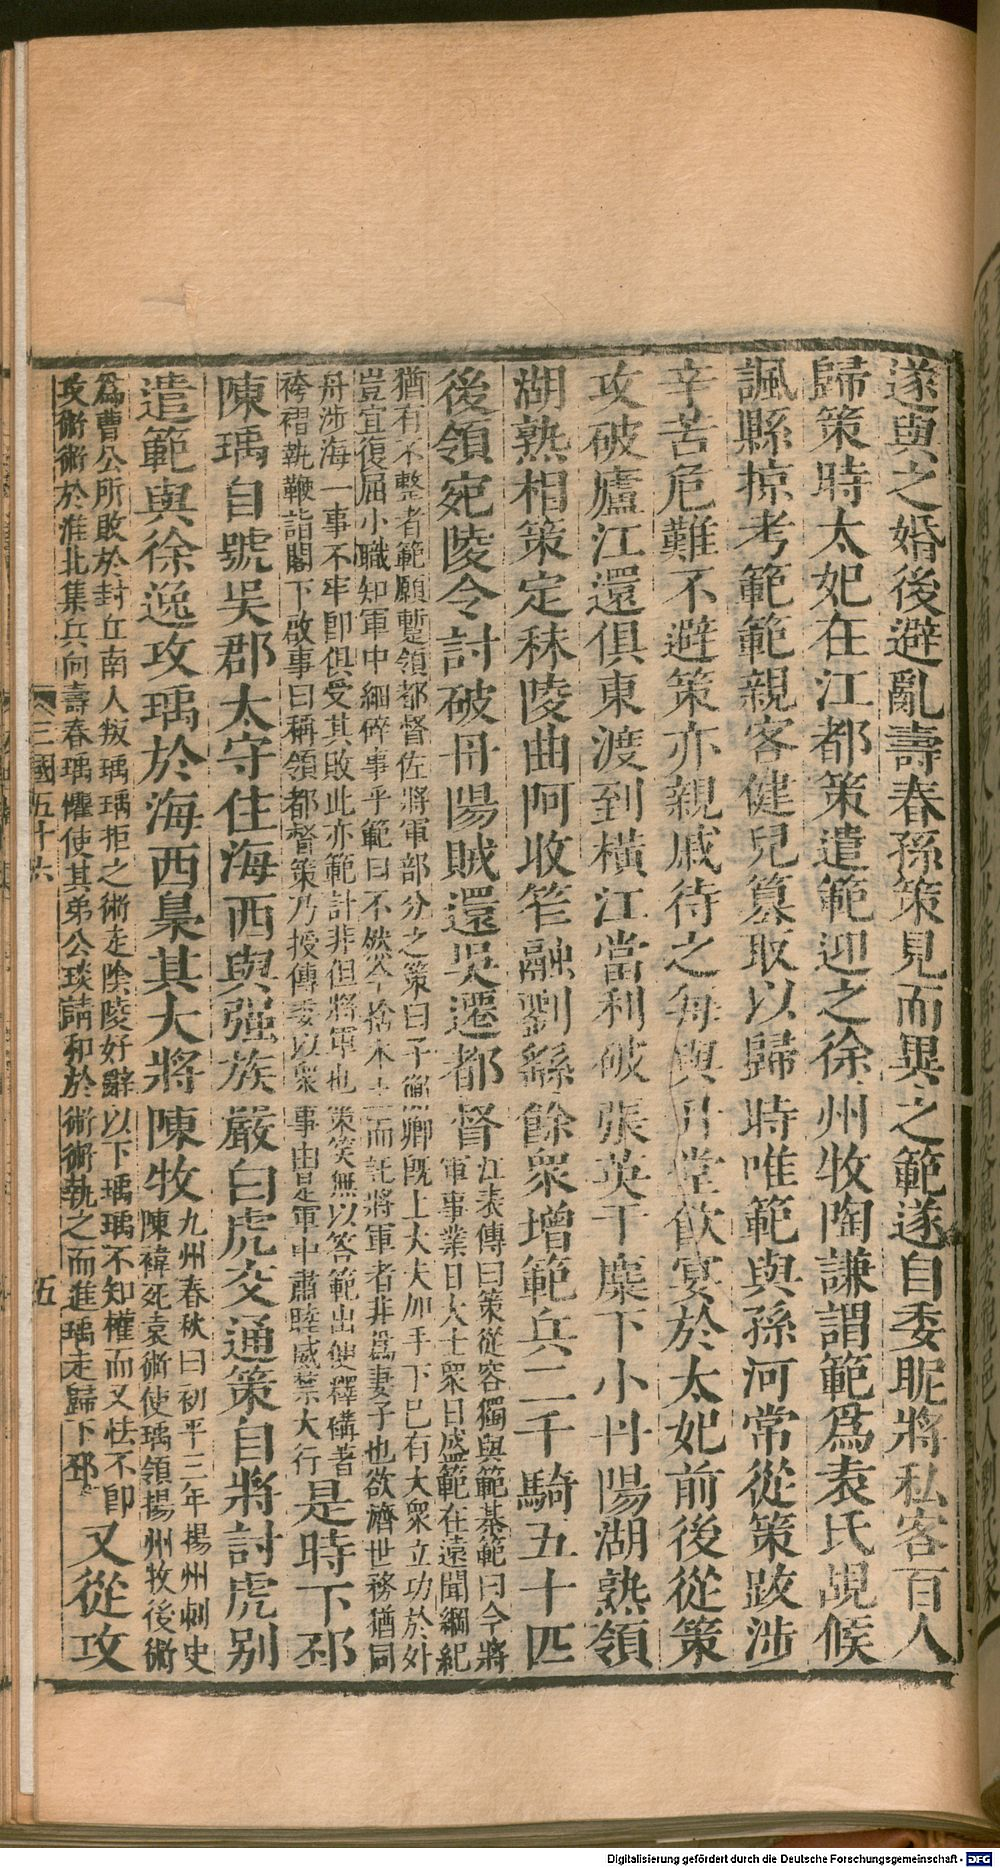 遂與之婚後避亂壽春孫策見而異之範遂自委昵將私客百人
歸策時太妃在江都策遣範迎之徐州牧陶謙謂範爲袁氏覘候
諷縣掠考範範親客健兒篡取以歸時唯範與孫河常從策跋涉
辛苦危難不避策亦親戚待之每與升堂飮宴於太妃前後從策
攻破廬江還俱東渡到橫江當利破張英于麋下小丹陽湖熟領
湖熟相策定秣陵曲阿收笮融劉繇餘衆增範兵二千騎五十匹
後領宛陵令討破丹陽賊還吳遷都督
江表傳曰策從容獨與範棊範曰今將
軍事業日大士衆日盛範在遠聞綱紀
猶有不整者範願暫領都督佐將軍部分之策曰子衡卿旣上大夫加手下已有大衆立功於外
豈宜復屈小職知軍中細碎事乎範曰不然今捨本土而託將軍者非爲妻子也欲濟世務猶同
舟涉海一事不牢卽俱受其敗此亦範計非但將軍也策笑無以答範出便釋褠著
袴褶執鞭詣閤下啟事曰稱領都督策乃授傳委以衆事由是軍中肅睦威禁大行
是時下邳
陳瑀自號吳郡太守住海西與强族嚴白虎交通策自將討虎别
遣範與徐逸攻瑀於海西梟其大將陳牧
九州春秋曰初平三年揚州刺史
陳褘死袁術使瑀領揚州牧後術
爲曹公所敗於封丘南人叛瑀瑀拒之術走陰陵好辭以下瑀瑀不知權而又怯不卽
攻術術於淮北集兵向壽春瑀懼使其弟公琰請和於術術執之而進瑀走歸下邳
又從攻
三國五十六
五
Digitalisierung gefördert durch die Deutsche Forschungsgemeinschaft - DFG